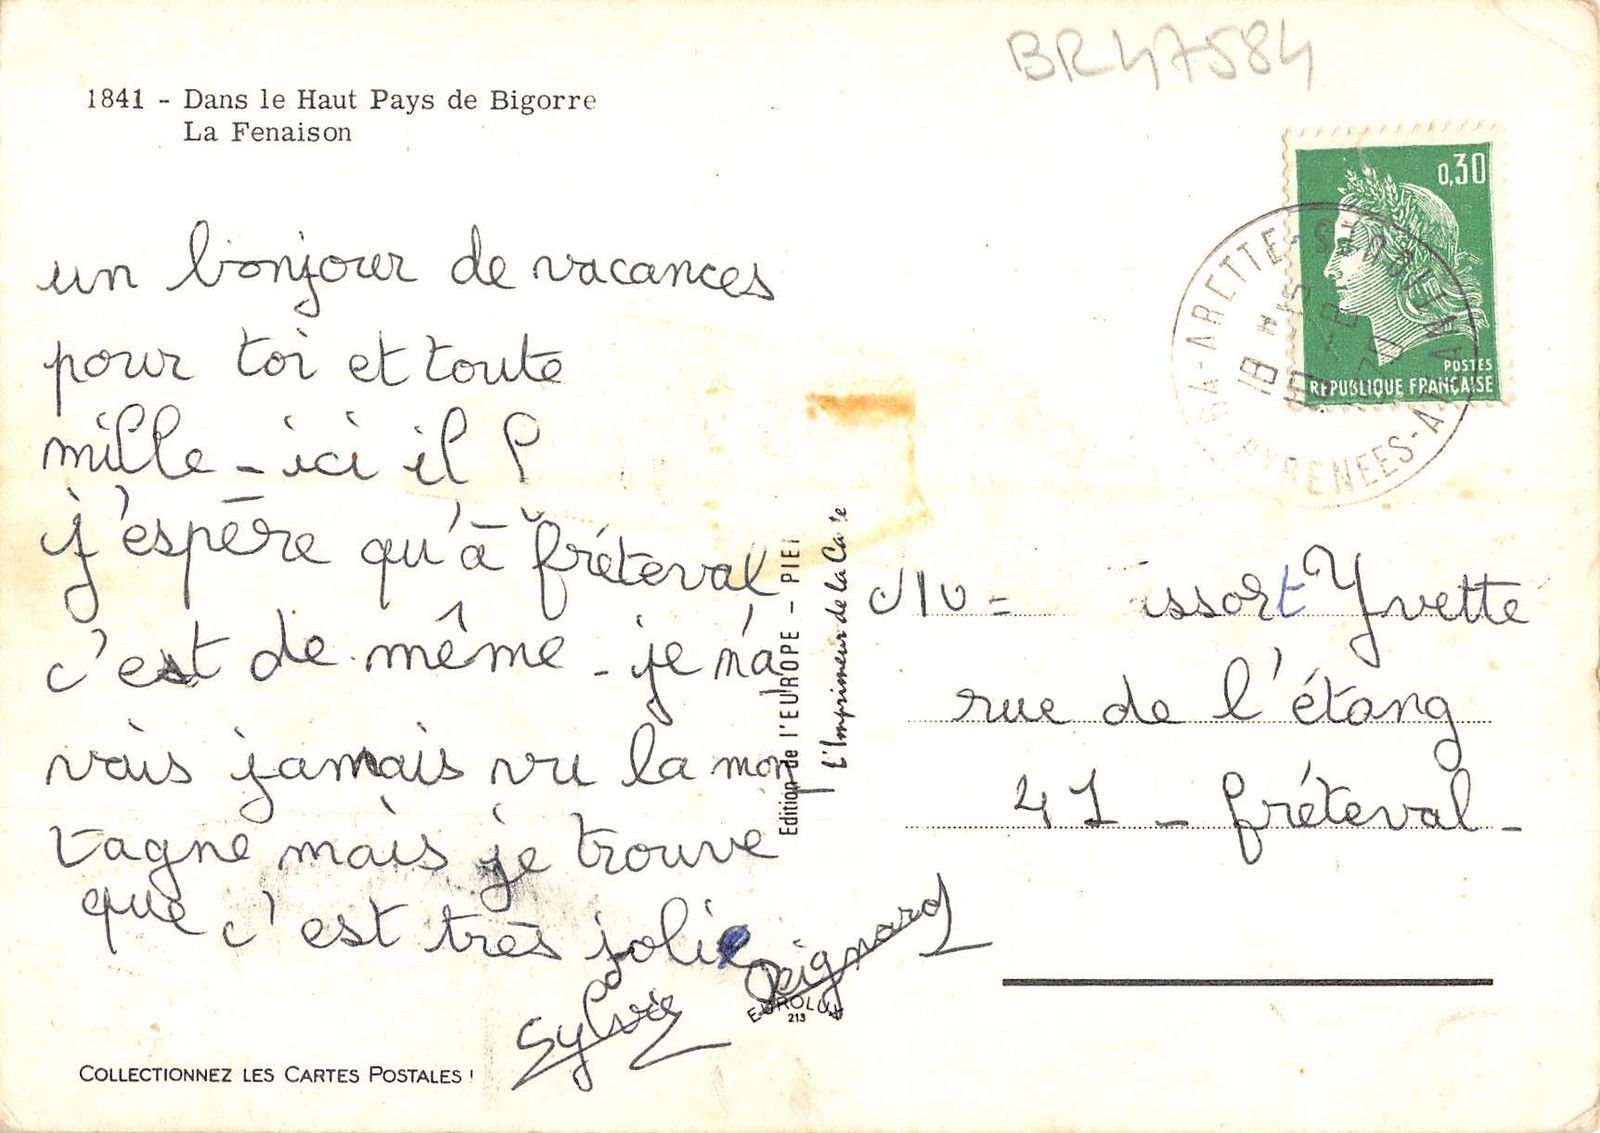 BR47584
1841 - Dans le Haut Pays de Bigorre
La Fenaison
0,30
POSTES
REPUBLIQUE FRANÇAISE
ARETTE-
PYRENEES-A
un bonjour de vacances
pour toi et toute
mille - ici il f
j'espère qu'à fréteval
c'est de même - je n'a
vais jamais vu la mon
tagne mais je trouve
que c'est très jolie
Sylvie Peignard
Edition de l'EUROPE - PIE
L'Imprimeur de la Ca
issort Yvette
rue de l'étang
41 - fréteval -
EUROLUX
213
COLLECTIONNEZ LES CARTES POSTALES !